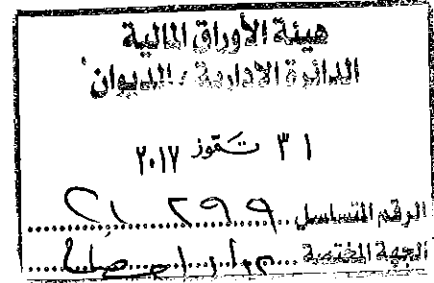 هيئة الأوراق المالية
الدائرة الادارية / الديوان
٣١ تموز ٢٠١٧
الرقم المتسلسل ٢١٢٩٩
الجهة المختصة